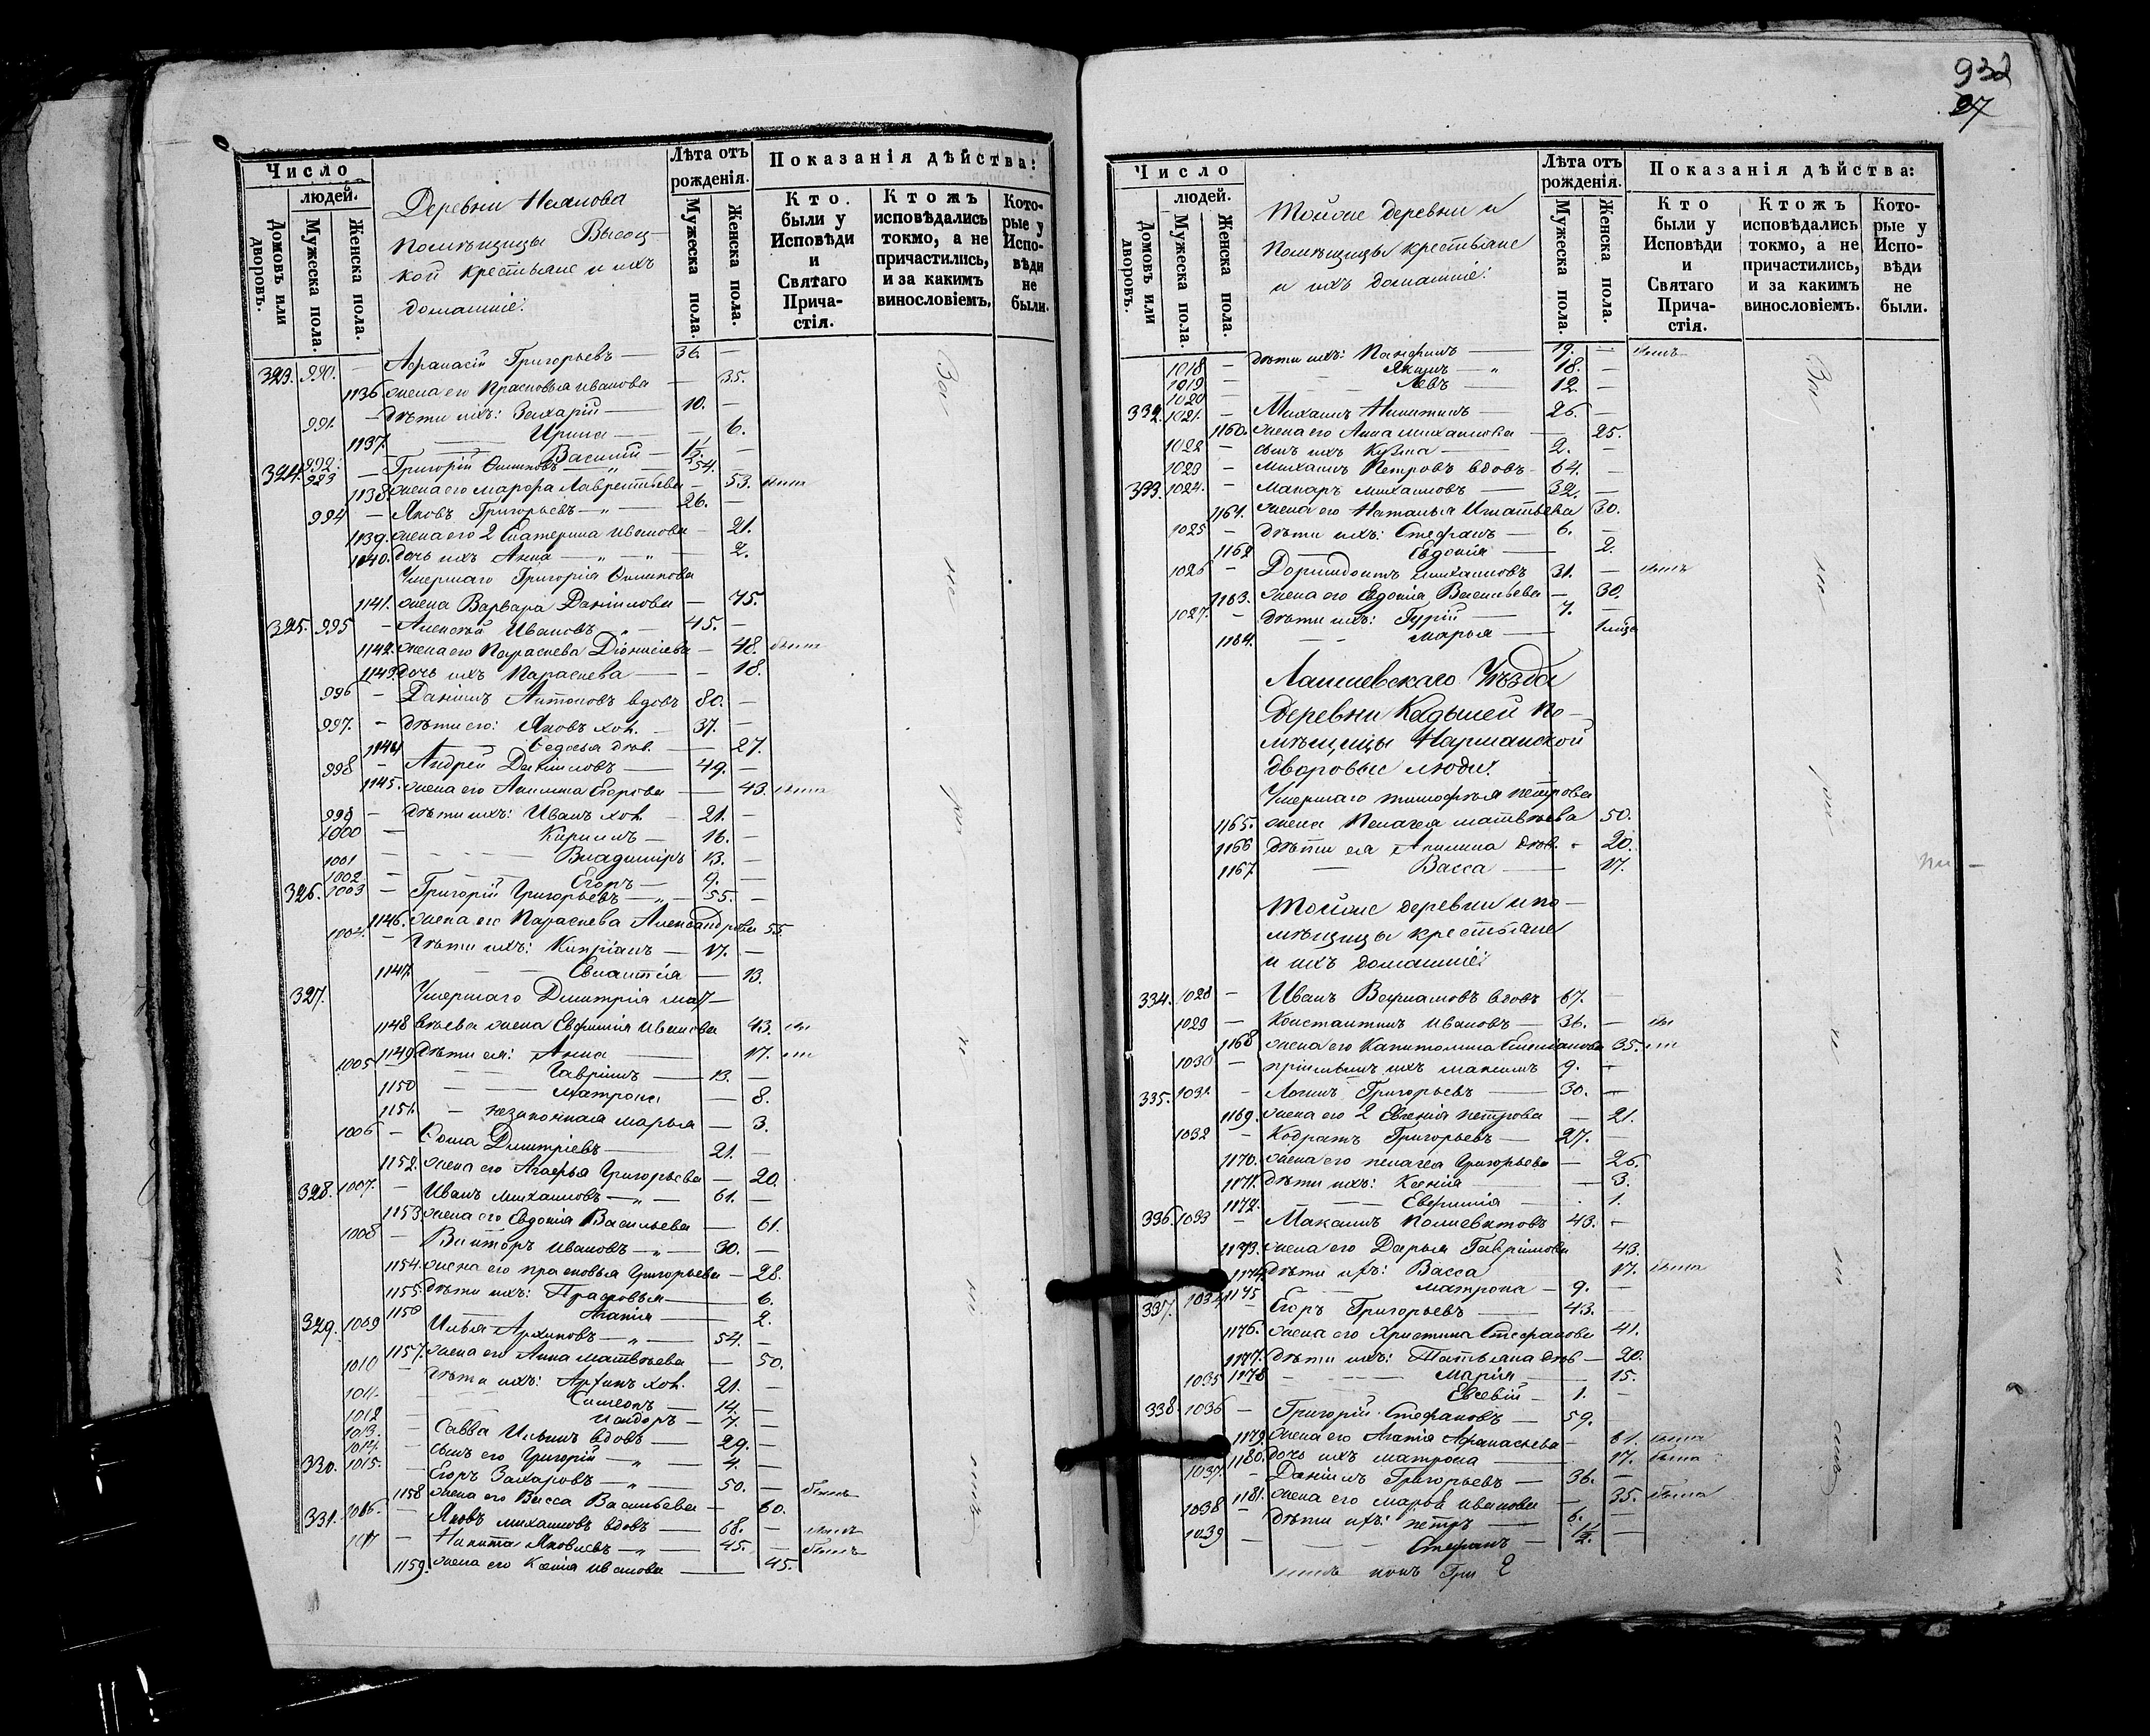 932
27
Число
людей.
Домовъ или дворовъ.
Мужеска пола.
Женска пола.
Деревни
помѣщицы Высоц-
кой крестьяне и ихъ
домашніе:
Лѣта отъ рожденія.
Мужеска пола.
Женска пола.
Показанія дѣйства:
Кто были у Исповѣди и Святаго Прича-стія.
Ктожъ исповѣдались токмо, а не причастились, и за какимъ винословіемъ.
Кото-рые у Испо-вѣди не были.
323. 990. — Афанасій Григорьевъ — 36. —
1136 жена его Прасковья Иванова — 35.
991. — дѣти ихъ: Захарій — 10. —
1137. Ирина — 6.
992. Василій — 1½. —
324. 993 — Григорій — 54.
1138 жена его Марфа Лаврентьева — 53. была
994 — Яковъ Григорьевъ — 26. —
1139. жена его 2 Екатерина Иванова — 21.
1140. дочь ихъ Анна — 2.
Умершаго Григорія
1141. жена Варвара Данилова — 75.
325. 995 — Алексѣй Ивановъ — 45. —
1142. жена его Параскева Діонисіева — 48. была
1143. дочь ихъ Параскева — 18.
996 — Даніилъ Антоновъ вдовъ 80. —
997. — дѣти его: Яковъ хол. 37. —
1144 Федосья дѣв. — 27.
998 — Андрей Даниловъ — 49. —
1145. жена его Акилина Егорова — 43. была
999 — дѣти ихъ: Иванъ хол. 21. —
1000 — Кириллъ — 16. —
1001 — Владиміръ 13. —
1002 — Егоръ — 9. —
326. 1003 — Григорій Григорьевъ — 55. —
1146. жена его Параскева Александрова 55.
1004. — дѣти ихъ: Кипріанъ — 17. —
1147. Евлампія — 13.
327. Умершаго Димитрія Мат-
1148 вѣева жена Евфимія Иванова 43. бы
1149 дѣти ея: Анна — 17. ли
1005 — Гавріилъ — 13. —
1150 Матрона — 8.
1151. — незаконная Марья — 3.
1006 — Фома Димитріевъ — 21. —
1152. жена его Агафья Григорьева — 20.
328. 1007. — Иванъ Михаиловъ — 61. —
1153. жена его Евдокія Васильева — 61.
1008 — Викторъ Ивановъ — 30. —
1154. жена его Прасковья Григорьева — 28.
1155. дѣти ихъ: — 6.
1156 Агапія — 2.
329. 1009 Илья Архиповъ — 54. —
1157. жена его Анна Матвѣева — 50.
1010 — дѣти ихъ: Архипъ хол. 21. —
1011. Симеонъ — 14. —
1012 Исидоръ — 7. —
1013. Савва Ильинъ вдовъ — 29. —
1014. — сынъ его Григорій — 4. —
330. 1015. — Егоръ Захаровъ — 50. — былъ
1158 жена его Васса Васильева — 60.
331. 1016 — Яковъ Михаиловъ вдовъ — 68. — былъ
1017 — Никита Яковлевъ — 45. — былъ
1159. жена его Ксенія Иванова — 45.
Число
людей.
Домовъ или дворовъ.
Мужеска пола.
Женска пола.
Тойже деревни и
помѣщицы крестьяне
и ихъ домашніе:
Лѣта отъ рожденія.
Мужеска пола.
Женска пола.
Показанія дѣйства:
Кто были у Исповѣди и Святаго Прича-стія.
Ктожъ исповѣдались токмо, а не причастились, и за какимъ винословіемъ.
Кото-рые у Испо-вѣди не были.
1018 — дѣти ихъ: Панфилъ — 19. — былъ
1019 — Якимъ — 18. —
1020 — Левъ — 12. —
332. 1021. — Михаилъ Никитинъ — 26. —
1160. жена его Анна Михаилова — 25.
1022 — сынъ ихъ Кузма — 2. —
1023 — Михаилъ Петровъ вдовъ — 64. —
333. 1024. — Макаръ Михаиловъ — 32. —
1161. жена его Наталья Игнатьева 30.
1025 — дѣти ихъ: Стефанъ — 6. —
1162 Евдокія — 2.
1026 — Доримедонтъ Михаиловъ 31. — былъ
1163. жена его Евдокія Васильева — 30.
1027. — дѣти ихъ: Гурій — 7. —
1164. Марья —
Лаишевскаго Уѣзда
деревни Кадышей по-
мѣщицы Нармонской
дворовые люди:
Умершаго Тимофѣя Петрова
1165. жена Пелагея Матвѣева 50.
1166 дѣти ея Акилина дѣв. — 20.
1167. Васса — 17.
Тойже деревни и по-
мѣщицы крестьяне
и ихъ домашніе:
334. 1028 — Иванъ вдовъ 67. —
1029 — Константинъ Ивановъ — 36. — бы
1168 жена его Капитолина 35. ли
1030 — пріемышъ ихъ Максимъ 9. —
335. 1031. — Логинъ Григорьевъ — 30. —
1169. жена его 2 Евгенія Петрова — 21.
1032 — Кодратъ Григорьевъ — 27. —
1170. жена его Пелагея Григорьева — 26.
1171. дѣти ихъ: Ксенія — 3.
1172. Евфимія — 1.
336. 1033 — Поліевктовъ 43. —
1173. жена его Дарья Гавріилова 43.
1174 дѣти ихъ: Васса — 17. была
1175 Матрона — 9. —
337. 1034 — Егоръ Григорьевъ — 43. —
1176. жена его Христина Стефанова 41.
1177. дѣти ихъ: Татьяна дѣв — 20.
1178 Марія — 15.
1035 Евсевій — 1. —
338. 1036 — Григорій Стефановъ — 59. —
1179. жена его Агапія Афанасьева — 61. была
1180. дочь ихъ Матрона — 17. была
1037. — Даніилъ Григорьевъ — 36. —
1181. жена его Марѳа Иванова — 35. была
1038 — дѣти ихъ: Петръ — 6. —
1039 — Стефанъ — ½. —